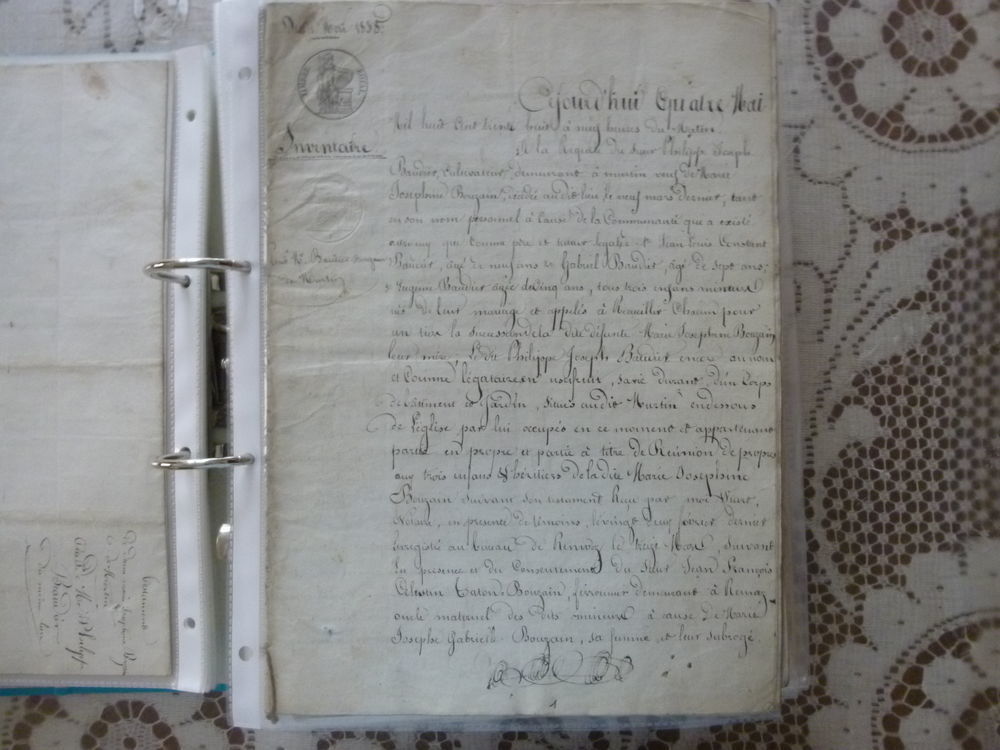 Mai 1838
TIMBRE ROYAL
Inventaire
Cejourd'hui Quatre Mai
Mil huit Cent trente huit à neuf heures du Matin
A la Requete du Sieur Philippe Joseph
Baudier, cultivateur, demeurant à murtin veuf de Marie
Josephine Bouzain, décédée audit lieu le neuf mars dernier, tant
en son nom personnel à cause de la Communauté que a existé
que comme père et tuteur légale de Jean Louis Constant
Baudier, âgé de neuf ans de Gabriel Baudier, âgé de sept ans;
Eugene Baudier âgé de Cinq ans, tous trois enfans mineurs
nés de leur mariage et appelés à Recueillir Chacun pour
un tiers la Succession de la dite défunte Marie Josephine Bouzain
leur mère; Le dit Philippe Joseph Baudier encore au nom
et Comme légataire en usufruit, sa vie durant, d'un Corps
de bâtiment et Jardin, situés audit Murtin endessous
de l'église par lui occupés en ce moment et appartenant
partie en propre et partie à titre de Réunion de propres
aux trois enfans & héritiers de la dite Marie Josephine
Bouzain suivant son testament Reçu par moi
Notaire, en presence de témoins, le vingt deux février dernier
Enregistré au bureau de Renwez le treize Mars, suivant
En presence et du Consentement du Sieur Jean François
Célestin Caton Bouzain, demeurant à Remaz
oncle maternel des dits mineurs à cause de Marie
Josephe Gabrielle Bouzain, sa femme, et leur subrogé
1